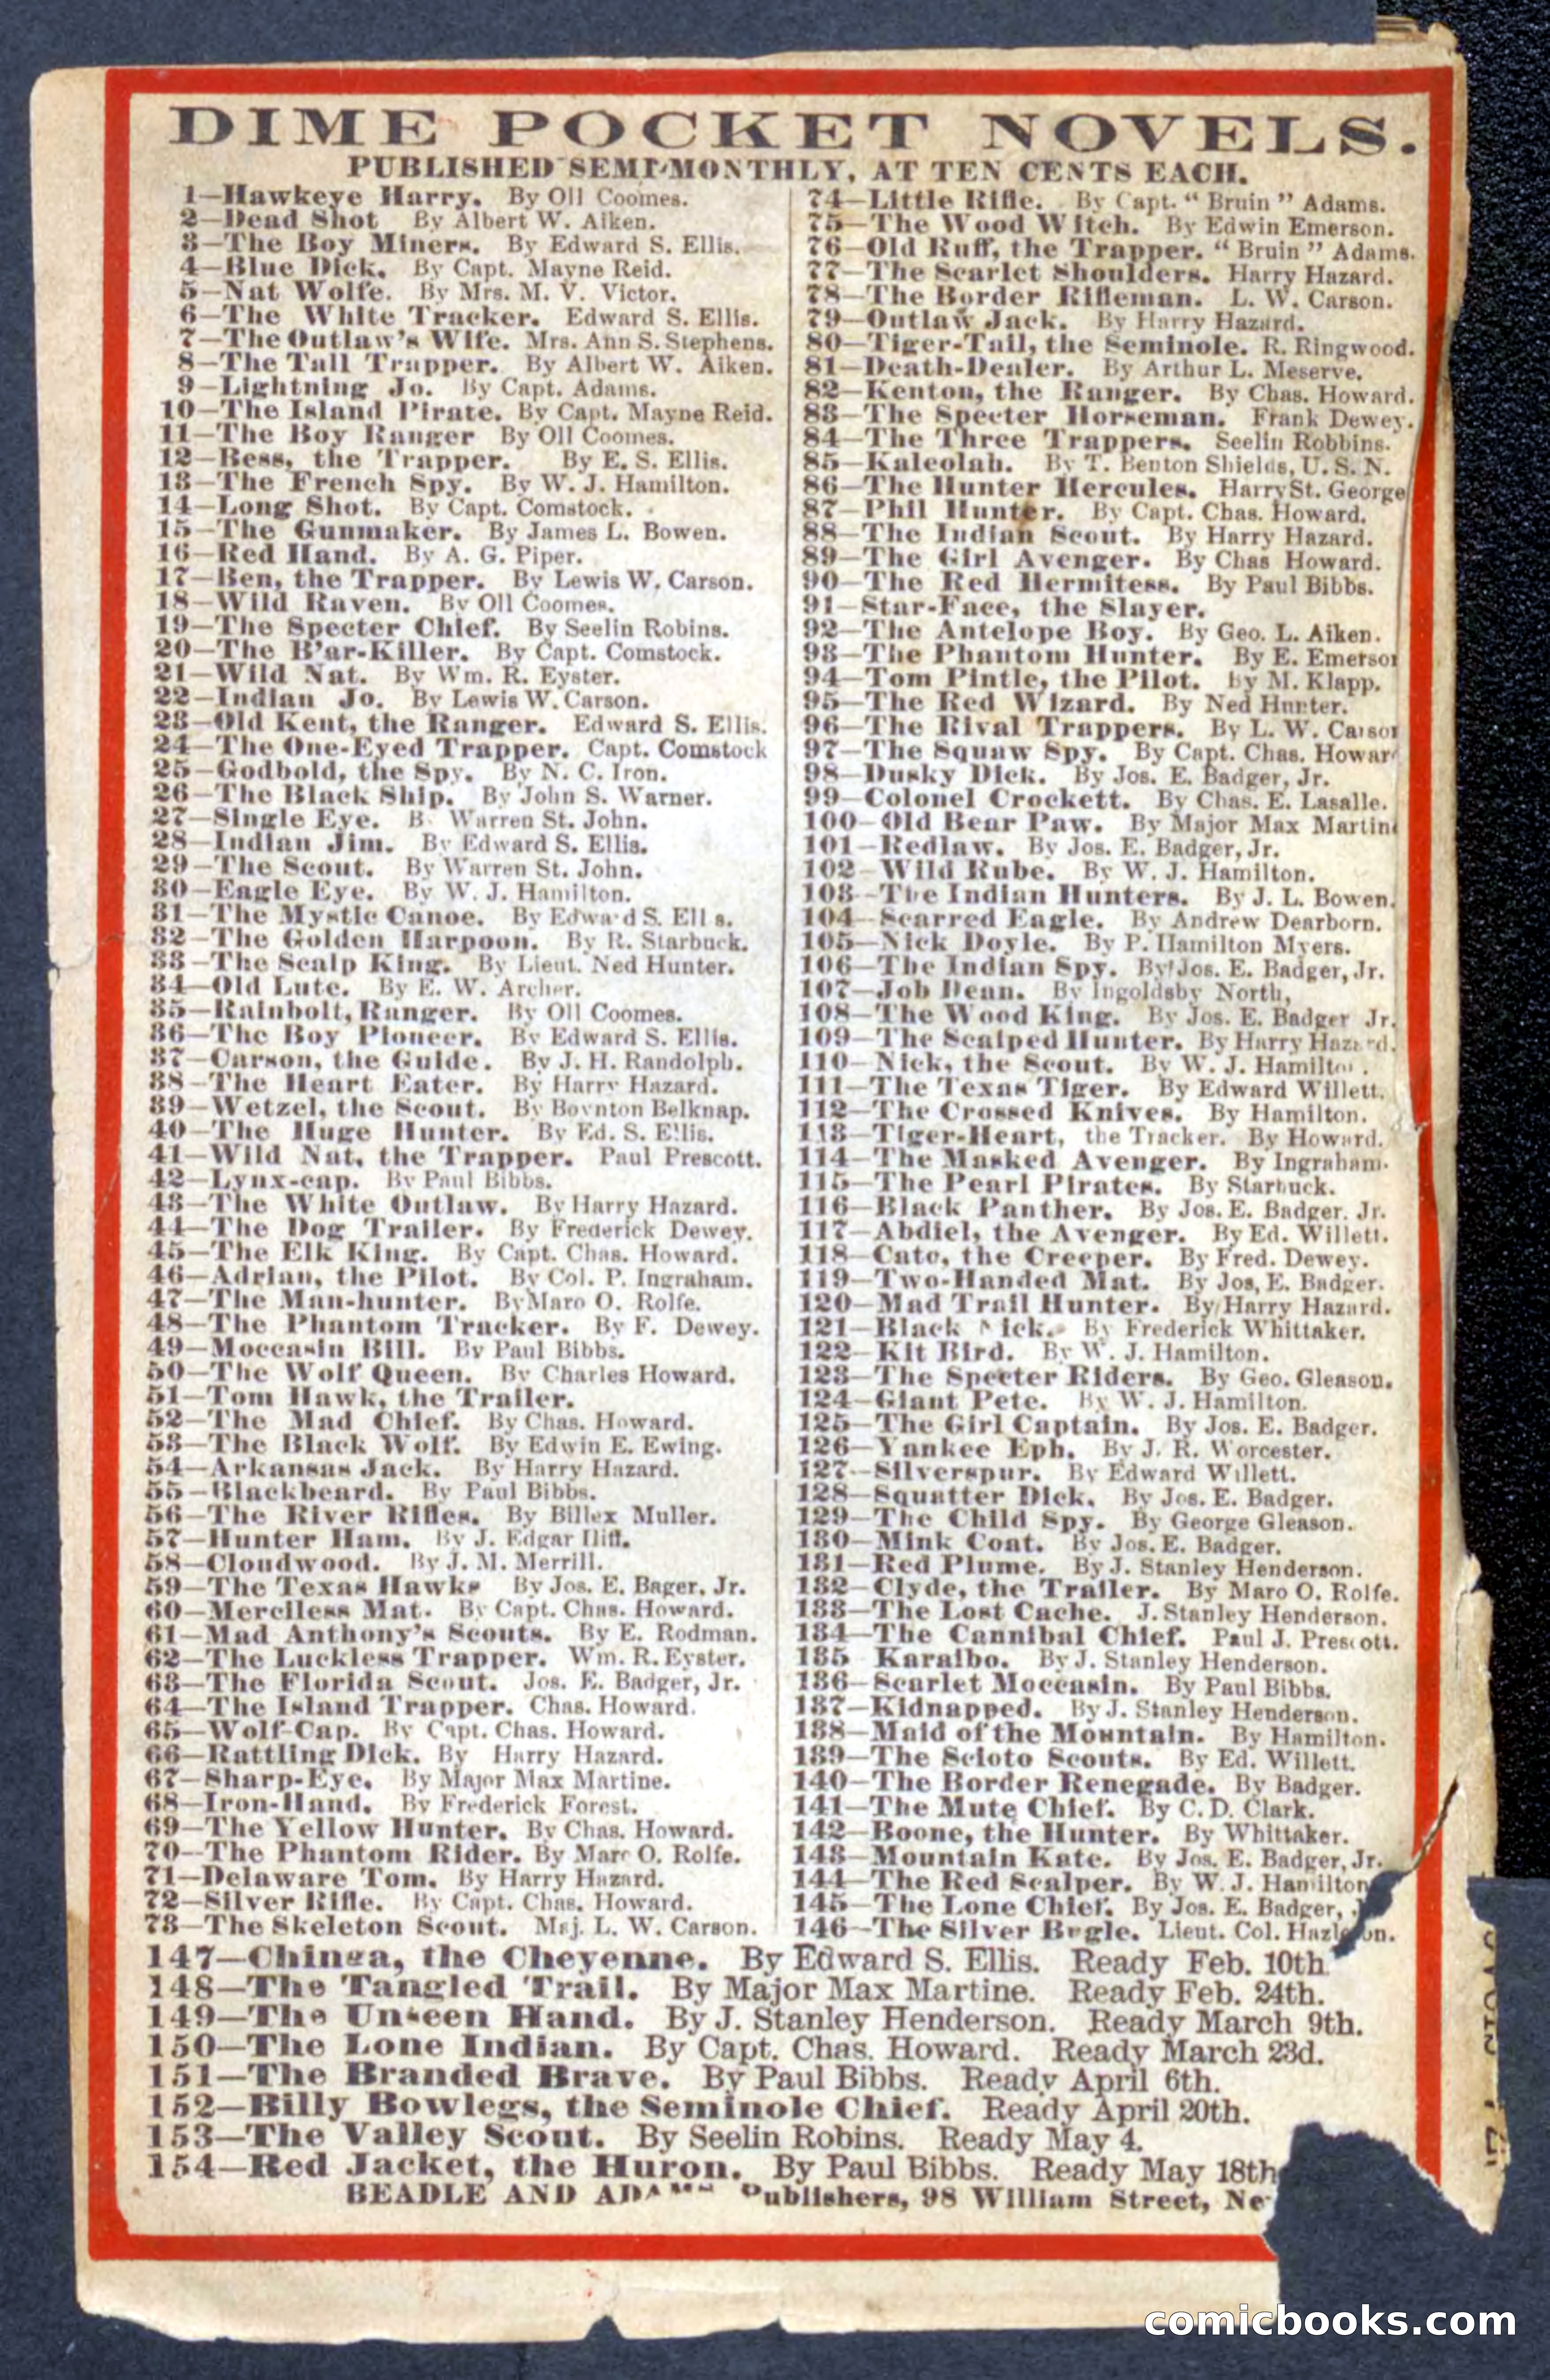 DIME POCKET NOVELS.
PUBLISHED SEMI-MONTHLY, AT TEN CENTS EACH.
1—Hawkeye Harry. By Oll Coomes.
2—Dead Shot By Albert W. Aiken.
3—The Boy Miners. By Edward S. Ellis.
4—Blue Dick. By Capt. Mayne Reid.
5—Nat Wolfe. By Mrs. M. V. Victor.
6—The White Tracker. Edward S. Ellis.
7—The Outlaw's Wife. Mrs. Ann S. Stephens.
8—The Tall Trapper. By Albert W. Aiken.
9—Lightning Jo. By Capt. Adams.
10—The Island Pirate. By Capt. Mayne Reid.
11—The Boy Ranger By Oll Coomes.
12—Bess, the Trapper. By E. S. Ellis.
13—The French Spy. By W. J. Hamilton.
14—Long Shot. By Capt. Comstock.
15—The Gunmaker. By James L. Bowen.
16—Red Hand. By A. G. Piper.
17—Ben, the Trapper. By Lewis W. Carson.
18—Wild Raven. By Oll Coomes.
19—The Specter Chief. By Seelin Robins.
20—The B'ar-Killer. By Capt. Comstock.
21—Wild Nat. By Wm. R. Eyster.
22—Indian Jo. By Lewis W. Carson.
23—Old Kent, the Ranger. Edward S. Ellis.
24—The One-Eyed Trapper. Capt. Comstock
25—Godbold, the Spy. By N. C. Iron.
26—The Black Ship. By John S. Warner.
27—Single Eye. B Warren St. John.
28—Indian Jim. By Edward S. Ellis.
29—The Scout. By Warren St. John.
30—Eagle Eye. By W. J. Hamilton.
31—The Mystic Canoe. By Edward S. Ell s.
32—The Golden Harpoon. By R. Starbuck.
33—The Scalp King. By Lieut. Ned Hunter.
34—Old Lute. By E. W. Archer.
35—Rainbolt, Ranger. By Oll Coomes.
36—The Boy Pioneer. By Edward S. Ellis.
37—Carson, the Guide. By J. H. Randolph.
38—The Heart Eater. By Harry Hazard.
39—Wetzel, the Scout. By Boynton Belknap.
40—The Huge Hunter. By Ed. S. Ellis.
41—Wild Nat, the Trapper. Paul Prescott.
42—Lynx-cap. By Paul Bibbs.
43—The White Outlaw. By Harry Hazard.
44—The Dog Trailer. By Frederick Dewey.
45—The Elk King. By Capt. Chas. Howard.
46—Adrian, the Pilot. By Col. P. Ingraham.
47—The Man-hunter. By Maro O. Rolfe.
48—The Phantom Tracker. By F. Dewey.
49—Moccasin Bill. By Paul Bibbs.
50—The Wolf Queen. By Charles Howard.
51—Tom Hawk, the Trailer.
52—The Mad Chief. By Chas. Howard.
53—The Black Wolf. By Edwin E. Ewing.
54—Arkansas Jack. By Harry Hazard.
55—Blackbeard. By Paul Bibbs.
56—The River Rifles. By Billex Muller.
57—Hunter Ham. By J. Edgar Iliff.
58—Cloudwood. By J. M. Merrill.
59—The Texas Hawks By Jos. E. Bager, Jr.
60—Merciless Mat. By Capt. Chas. Howard.
61—Mad Anthony's Scouts. By E. Rodman.
62—The Luckless Trapper. Wm. R. Eyster.
63—The Florida Scout. Jos. E. Badger, Jr.
64—The Island Trapper. Chas. Howard.
65—Wolf-Cap. By Capt. Chas. Howard.
66—Rattling Dick. By Harry Hazard.
67—Sharp-Eye. By Major Max Martine.
68—Iron-Hand. By Frederick Forest.
69—The Yellow Hunter. By Chas. Howard.
70—The Phantom Rider. By Maro O. Rolfe.
71—Delaware Tom. By Harry Hazard.
72—Silver Rifle. By Capt. Chas. Howard.
73—The Skeleton Scout. Maj. L. W. Carson.
74—Little Rifle. By Capt. "Bruin" Adams.
75—The Wood Witch. By Edwin Emerson.
76—Old Ruff, the Trapper. "Bruin" Adams.
77—The Scarlet Shoulders. Harry Hazard.
78—The Border Rifleman. L. W. Carson.
79—Outlaw Jack. By Harry Hazard.
80—Tiger-Tail, the Seminole. R. Ringwood.
81—Death-Dealer. By Arthur L. Meserve.
82—Kenton, the Ranger. By Chas. Howard.
83—The Specter Horseman. Frank Dewey.
84—The Three Trappers. Seelin Robbins.
85—Kaleolah. By T. Benton Shields, U. S. N.
86—The Hunter Hercules. Harry St. George
87—Phil Hunter. By Capt. Chas. Howard.
88—The Indian Scout. By Harry Hazard.
89—The Girl Avenger. By Chas Howard.
90—The Red Hermitess. By Paul Bibbs.
91—Star-Face, the Slayer.
92—The Antelope Boy. By Geo. L. Aiken.
93—The Phantom Hunter. By E. Emerson
94—Tom Pintle, the Pilot. By M. Klapp.
95—The Red Wizard. By Ned Hunter.
96—The Rival Trappers. By L. W. Carson
97—The Squaw Spy. By Capt. Chas. Howard
98—Dusky Dick. By Jos. E. Badger, Jr.
99—Colonel Crockett. By Chas. E. Lasalle.
100—Old Bear Paw. By Major Max Martine
101—Redlaw. By Jos. E. Badger, Jr.
102—Wild Rube. By W. J. Hamilton.
103—The Indian Hunters. By J. L. Bowen.
104—Scarred Eagle. By Andrew Dearborn.
105—Nick Doyle. By P. Hamilton Myers.
106—The Indian Spy. By Jos. E. Badger, Jr.
107—Job Dean. By Ingoldsby North,
108—The Wood King. By Jos. E. Badger Jr.
109—The Scalped Hunter. By Harry Hazard.
110—Nick, the Scout. By W. J. Hamilton.
111—The Texas Tiger. By Edward Willett.
112—The Crossed Knives. By Hamilton.
113—Tiger-Heart, the Tracker. By Howard.
114—The Masked Avenger. By Ingraham.
115—The Pearl Pirates. By Starbuck.
116—Black Panther. By Jos. E. Badger. Jr.
117—Abdiel, the Avenger. By Ed. Willett.
118—Cato, the Creeper. By Fred. Dewey.
119—Two-Handed Mat. By Jos, E. Badger.
120—Mad Trail Hunter. By Harry Hazard.
121—Black Nick. By Frederick Whittaker.
122—Kit Bird. By W. J. Hamilton.
123—The Specter Riders. By Geo. Gleason.
124—Giant Pete. By W. J. Hamilton.
125—The Girl Captain. By Jos. E. Badger.
126—Yankee Eph. By J. R. Worcester.
127—Silverspur. By Edward Willett.
128—Squatter Dick. By Jos. E. Badger.
129—The Child Spy. By George Gleason.
130—Mink Coat. By Jos. E. Badger.
131—Red Plume. By J. Stanley Henderson.
132—Clyde, the Trailer. By Maro O. Rolfe.
133—The Lost Cache. J. Stanley Henderson.
134—The Cannibal Chief. Paul J. Prescott.
135 Karaibo. By J. Stanley Henderson.
136—Scarlet Moccasin. By Paul Bibbs.
137—Kidnapped. By J. Stanley Henderson.
138—Maid of the Mountain. By Hamilton.
139—The Scioto Scouts. By Ed. Willett.
140—The Border Renegade. By Badger.
141—The Mute Chief. By C. D. Clark.
142—Boone, the Hunter. By Whittaker.
143—Mountain Kate. By Jos. E. Badger, Jr.
144—The Red Scalper. By W. J. Hamilton
145—The Lone Chief. By Jos. E. Badger,
146—The Silver Bugle. Lieut. Col. Hazleton.
147—Chinga, the Cheyenne. By Edward S. Ellis. Ready Feb. 10th
148—The Tangled Trail. By Major Max Martine. Ready Feb. 24th.
149—The Unseen Hand. By J. Stanley Henderson. Ready March 9th.
150—The Lone Indian. By Capt. Chas. Howard. Ready March 23d.
151—The Branded Brave. By Paul Bibbs. Ready April 6th.
152—Billy Bowlegs, the Seminole Chief. Ready April 20th.
153—The Valley Scout. By Seelin Robins. Ready May 4.
154—Red Jacket, the Huron. By Paul Bibbs. Ready May 18th
BEADLE AND ADAMS Publishers, 98 William Street, Ne
comicbooks.com